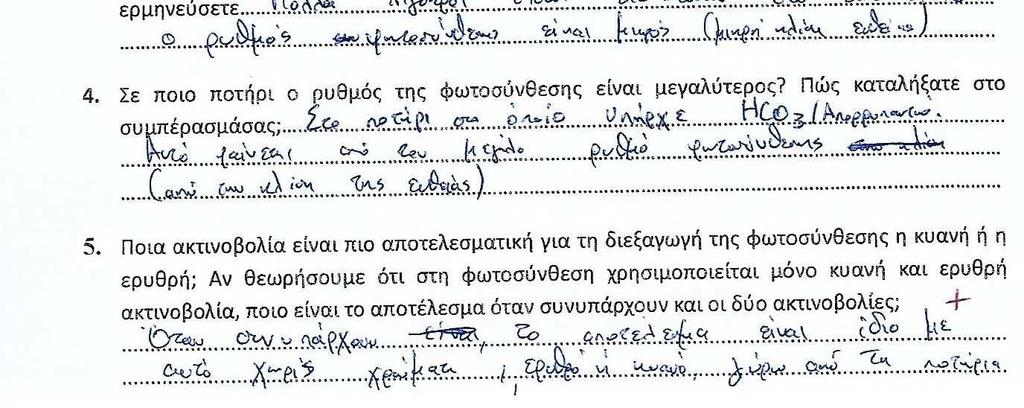 ερμηνεύσετε....Πολλά
ο ρυθμός φωτοσύνθεσης είναι μικρός (μικρή κλίση ευθείας)
4. Σε ποιο ποτήρι ο ρυθμός της φωτοσύνθεσης είναι μεγαλύτερος? Πώς καταλήξατε στο
συμπέρασμάσας;....Στο ποτήρι στο οποίο υπήρχε HCO3/Απορρυπαντικό.
Αυτό φαίνεται από τον μεγάλο ρυθμό φωτοσύνθεσης
(από την κλίση της ευθείας)
5. Ποια ακτινοβολία είναι πιο αποτελεσματική για τη διεξαγωγή της φωτοσύνθεσης η κυανή ή η
ερυθρή; Αν θεωρήσουμε ότι στη φωτοσύνθεση χρησιμοποιείται μόνο κυανή και ερυθρή
ακτινοβολία, ποιο είναι το αποτέλεσμα όταν συνυπάρχουν και οι δύο ακτινοβολίες; +
Όταν συνυπάρχουν είναι, το αποτέλεσμα είναι ίδιο με
αυτό χωρίς χρώματα, ερυθρό ή κυανό, γύρω από τα ποτήρια